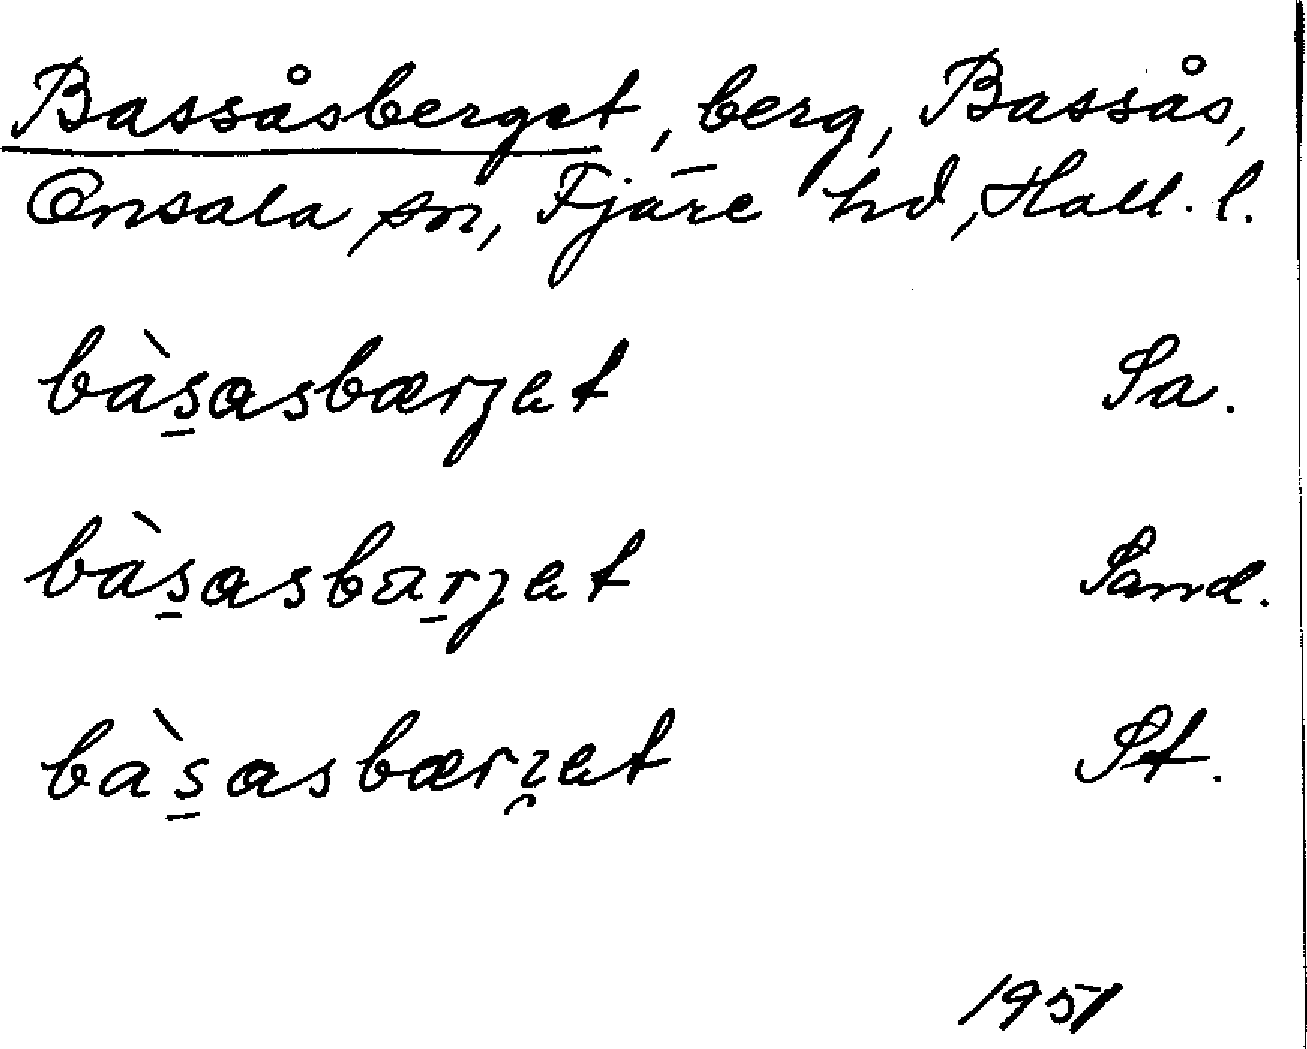 Bassåsberget, berg, Bassås,
Onsala sn, Fjäre hd, Hall. l.
bàs̱asbærȷet Sa.
bàs̱asbaṟȷet Sand.
bàs̱asbærʒet St.
1951